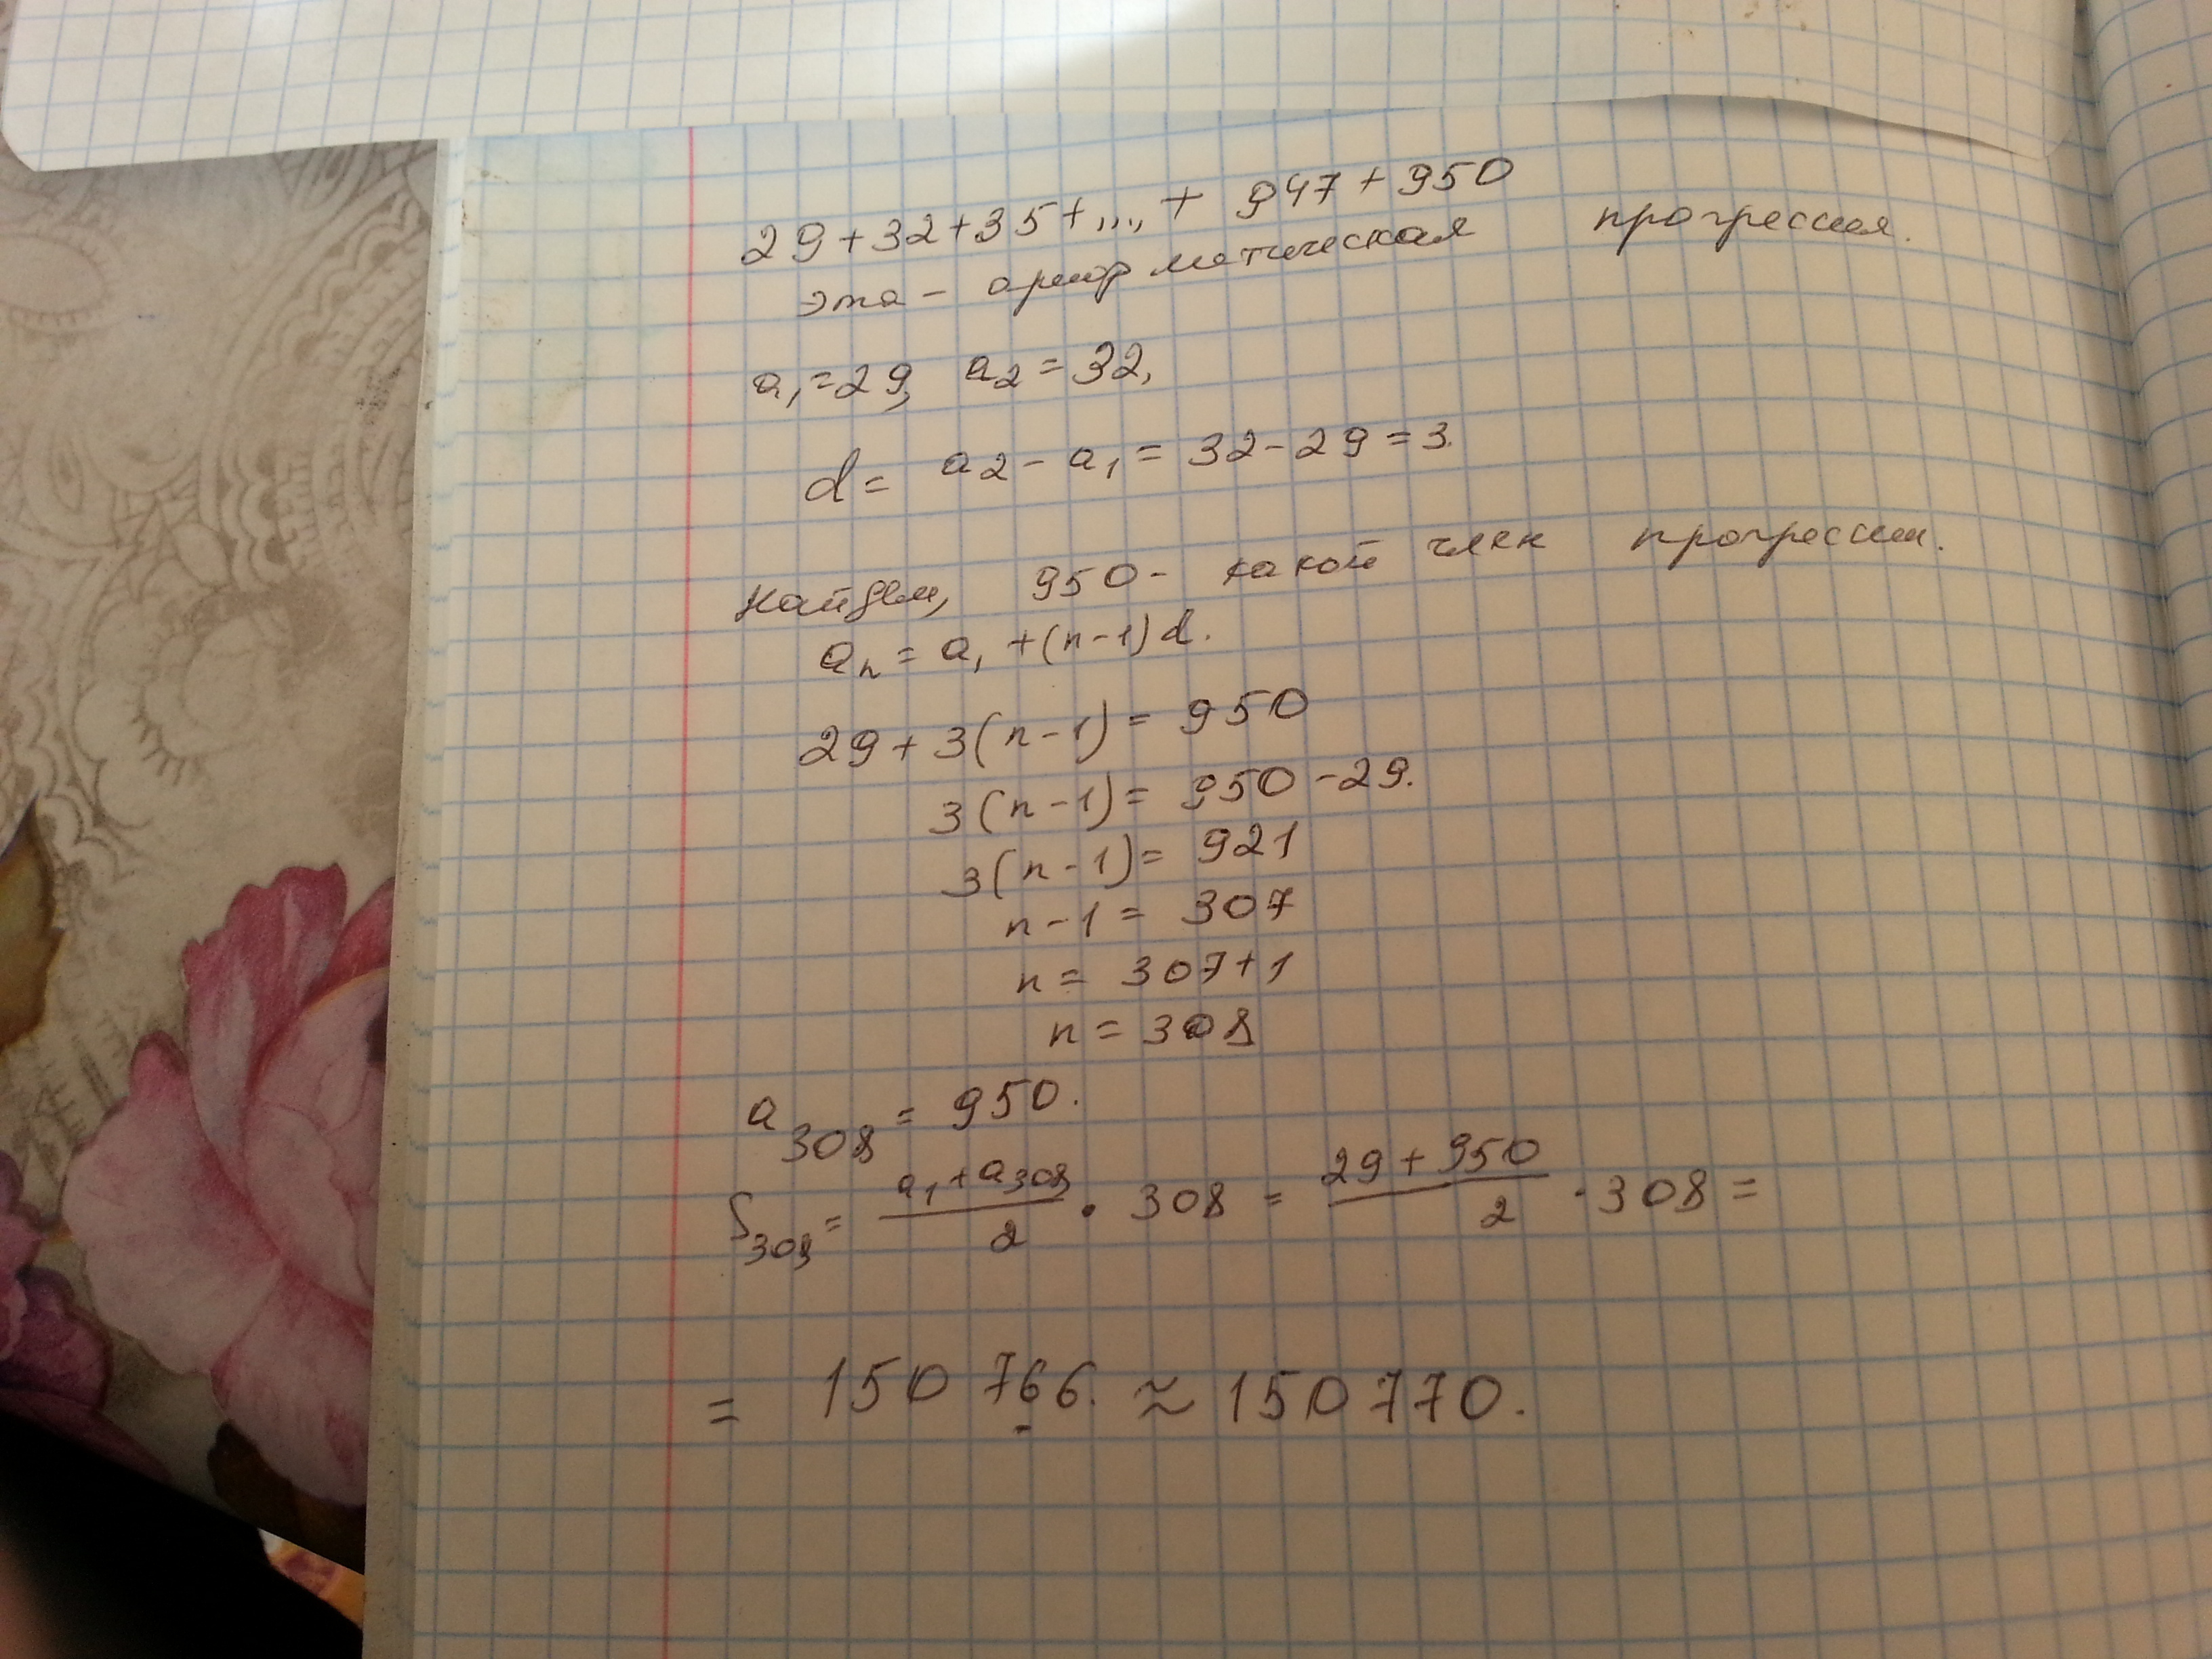 29+32+35+...+ 947+950
эта - арифметическая прогрессия.
a₁=29, a₂=32,
d= a₂-a₁= 32-29=3.
Найдем, 950- какой член прогрессии.
aₙ= a₁+(n-1)d.
29+3(n-1)= 950
3(n-1)= 950-29.
3(n-1)= 921
n-1= 307
n= 307+1
n=308
a₃₀₈= 950.
S₃₀₈= (a₁+a₃₀₈)/2 · 308 = (29+950)/2 · 308=
= 150 766. ≈ 150 770.